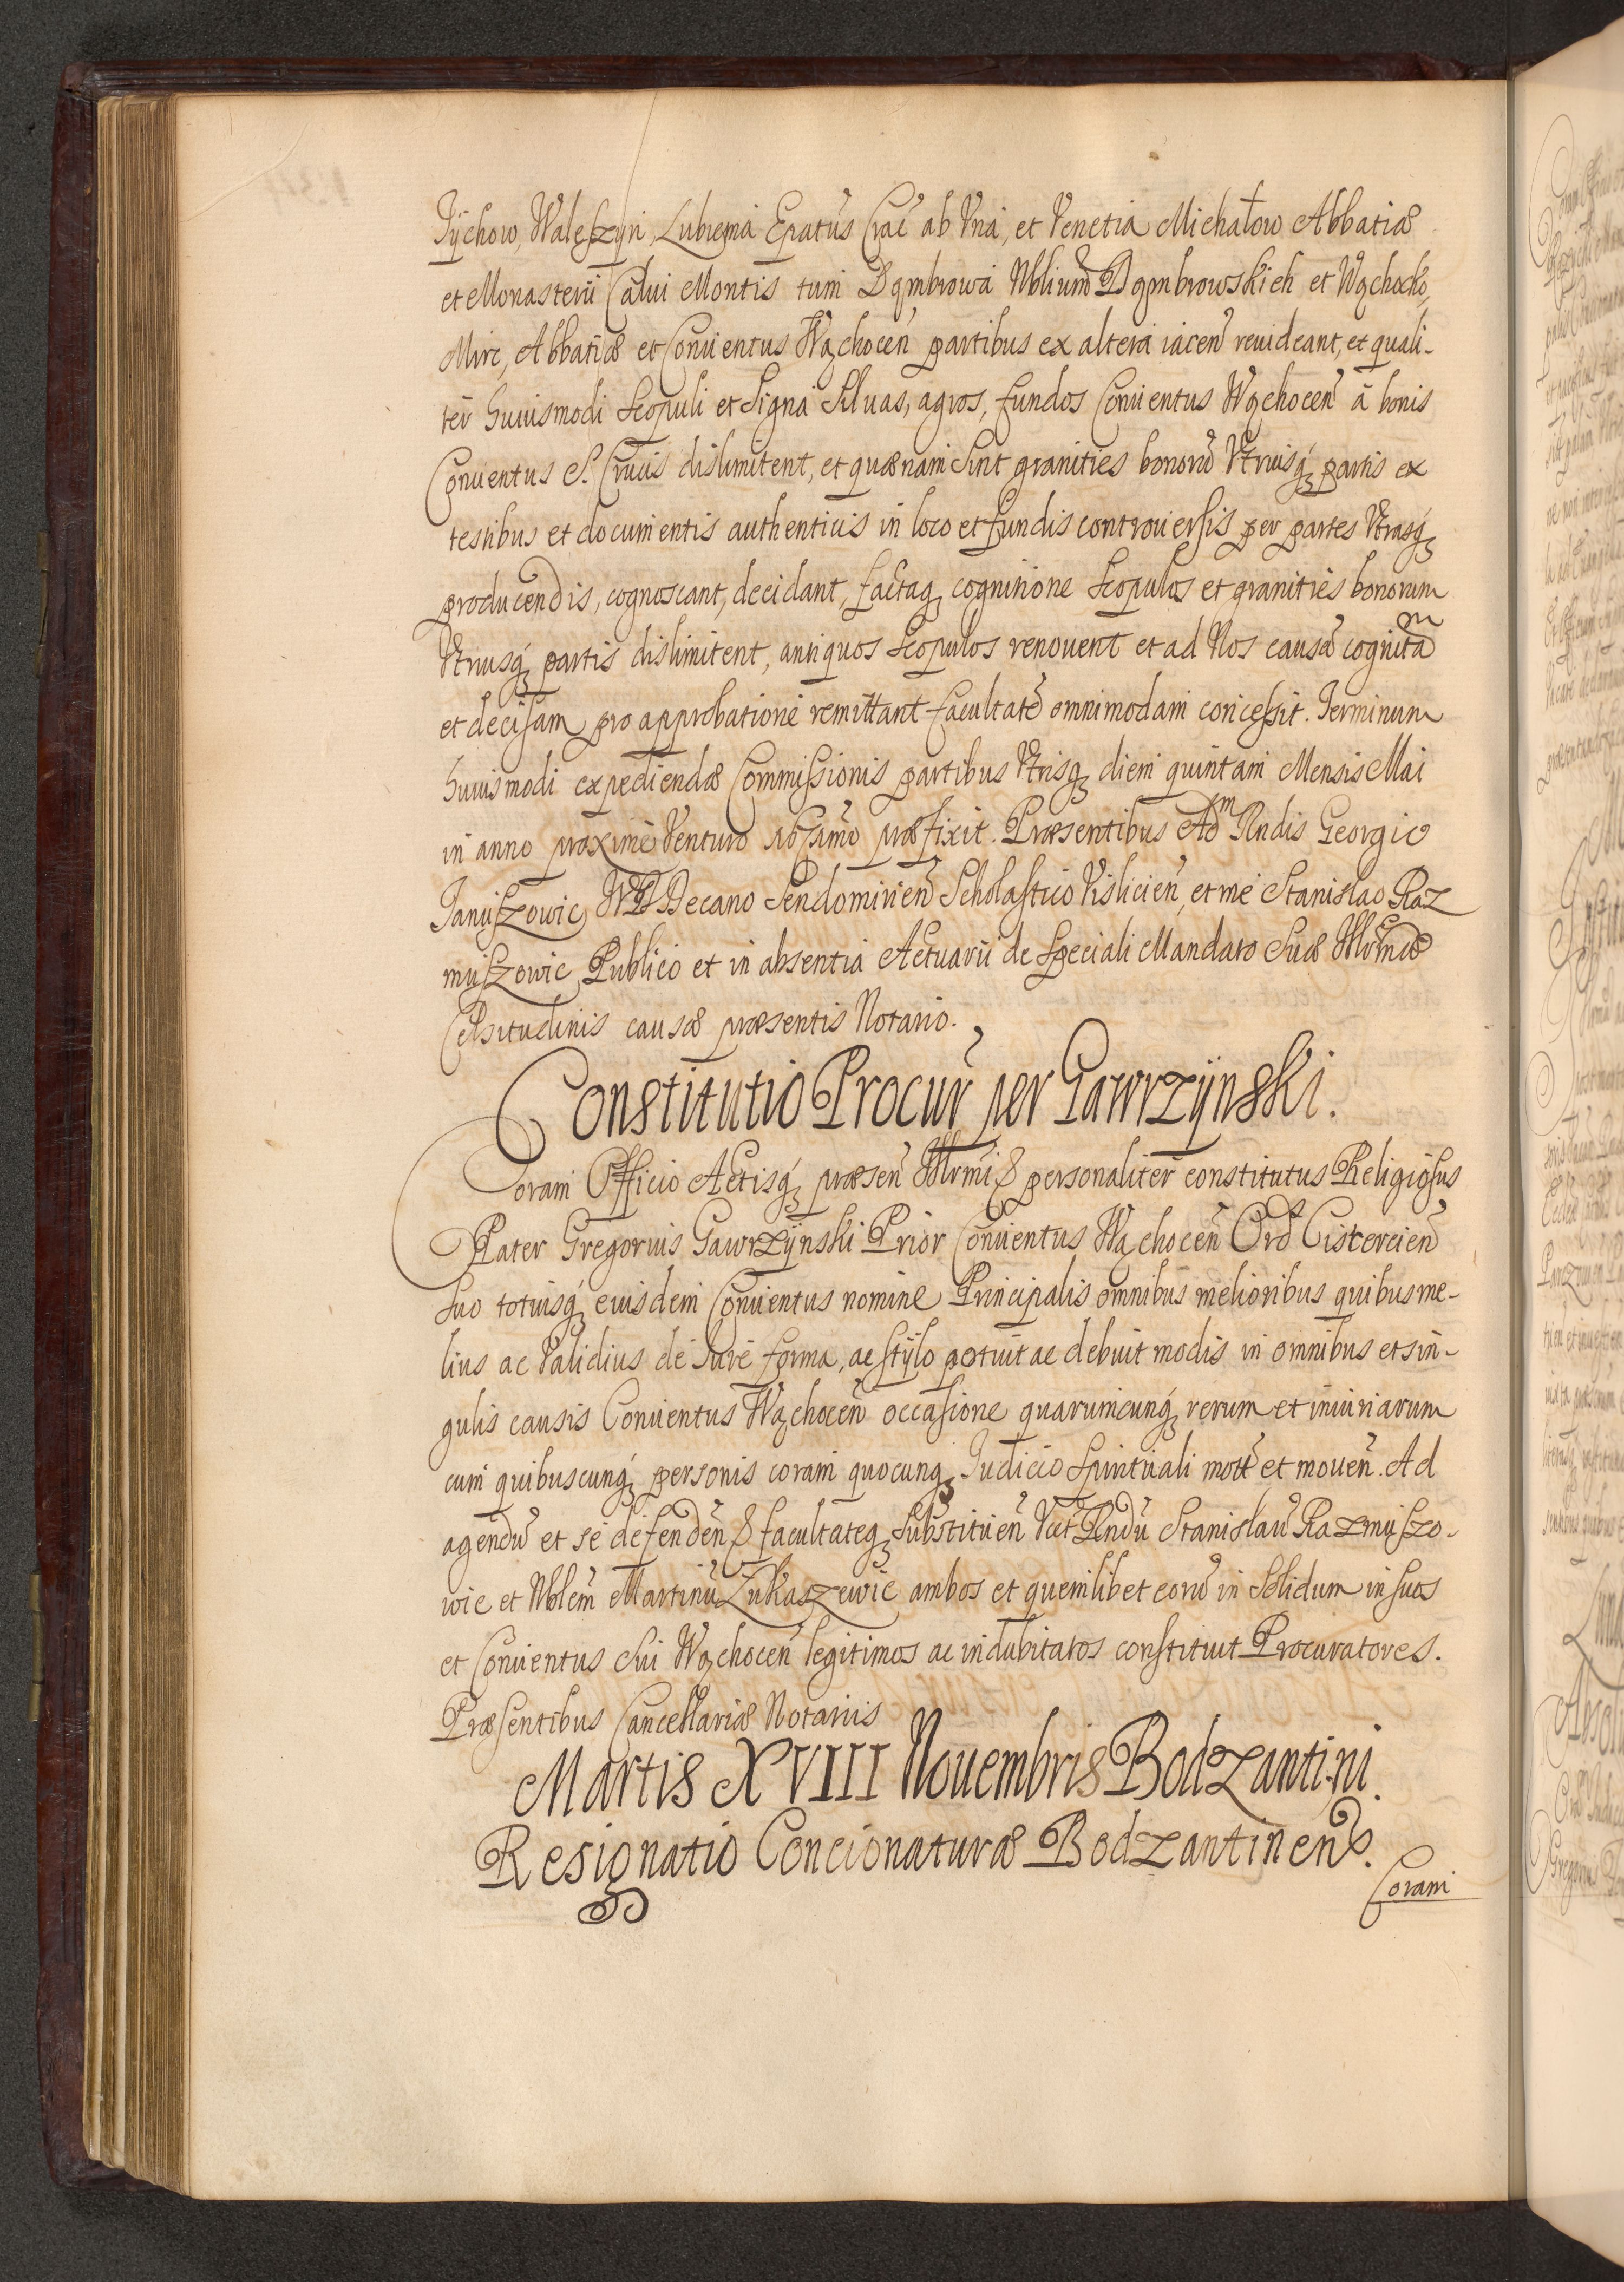 Tÿchow, Walęszÿn, Lubienia Epatus Crac ab Una, et Venetia Michałow Abbatiæ
et Monasterii Calui Montis tum Dąmbrowa Nblium Dąmbrowskich et Wąchocko,
Mirc, Abbatiæ et Conuentus Wąchocen partibus ex altera iacen reuideant, et quali-
ter huiusmodi Scopuli et Signa Siluas, agros, fundos Conuentus Wąchocen à bonis
Conuentus S. Crucis dislimitent, et quænam sint granities bonorū Vtriusq partis ex
testibus et documentis authenticis in loco et fundis controuersis per partes Vtrasq
producendis, cognoscant, decidant, factaq cognitione Scopulos et granities bonorum
Vtriusq partis dislimitent, antiquos Scopulos renouent et ad Nos causā cognitam
et decisam pro approbatione remittant facultatē omnimodam concessit. Terminum
huiusmodi expediendæ Commissionis partibus Vtrisq diem quintam Mensis Mai
in anno proximè Venturo præfixit. Præsentibus Adm Rndis Georgio
Januszowic Decano Sendomirien Scholastico Vislicien, et me Stanislao Raz
muszowic Publico et in absentia Actuarii de Speciali Mandato Suæ Illrmæ
Celsitudinis causæ præsentis Notario.
Constitutio Procur per Gawrzÿnski.
Coram Officio Actisq præsen Illrmi & personaliter constitutus Religiosus
Pater Gregorius Gawrzÿnski Prior Conuentus Wąchocen Ord Cistercien
suo totiusq eiusdem Conuentus nomine Principalis omnibus melioribus quibus me-
lius ac Validius de Iure forma, ac stÿlo potuit ac debuit modis in omnibus et sin-
gulis causis Conuentus Wąchocen occasione quarumcunq rerum et iniuriarum
cum quibuscunq personis coram quocunq Iudicio Spirituali mot et mouen. Ad
agendū et se defenden & facultateq substituen Vct Rndū Stanislaū Razmuszo-
wic et Nblem Martinū Łukaszewic ambos et quemlibet eorū in Solidum in suos
et Conuentus sui Wąchocen legitimos ac indubitatos constituit Procuratores.
Præsentibus Cancellariæ Notariis
Martis XVIII Nouembris Bodzantini.
Resignatio Concionaturæ Bodzantinen.
Coram